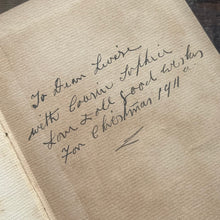 To Dear Louise
with Cousin Sophie
Love & all good wishes
For Christmas 1911